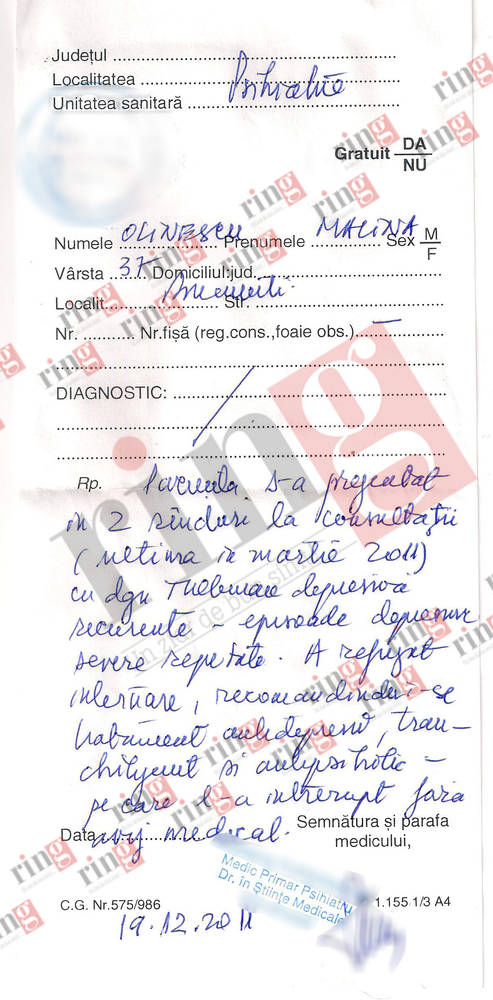 Județul
Localitatea
Unitatea sanitară Psihiatrie
Gratuit DA
NU
Numele OLINESCU Prenumele MALINA Sex M
F
Vârsta 37 Domiciliul:jud.
Localit. București Str.
Nr. Nr.fișă (reg.cons.,foaie obs.) —
DIAGNOSTIC:
Rp. Pacienta s-a prezentat
in 2 rînduri la consultații
(ultima in martie 2011)
cu dgn Tulburare depresivă
recurentă - episoade depresive
severe repetate. A refuzat
internare, recomandîndu-i-se
tratament antidepresiv, tran-
chilizant si antipsihotic -
pe care l-a intrerupt fara
aviz medical.
Data
Semnătura și parafa
medicului,
Medic Primar Psihiatru
Dr. în Științe Medicale
C.G. Nr.575/986
1.155 1/3 A4
19.12.2011
ring
Un ziar de bun simț